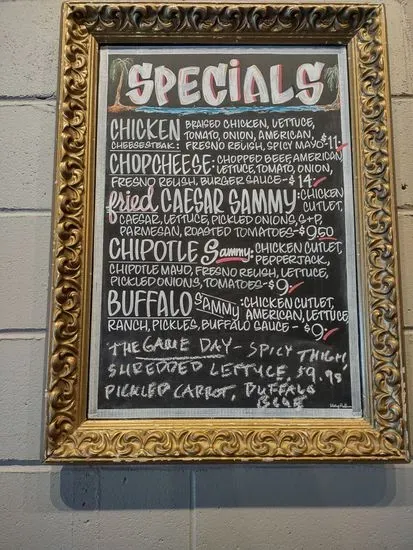 SPECIALS
CHICKEN BRAISED CHICKEN, LETTUCE,
CHEESESTEAK: TOMATO, ONION, AMERICAN,
FRESNO RELISH, SPICY MAYO $11
CHOPCHEESE: CHOPPED BEEF, AMERICAN
LETTUCE, TOMATO, ONION,
FRESNO RELISH, BURGER SAUCE - $14
fried CAESAR SAMMY: CHICKEN
CUTLET,
CAESAR, LETTUCE, PICKLED ONIONS, S+P,
PARMESAN, ROASTED TOMATOES - $9.50
CHIPOTLE Sammy: CHICKEN CUTLET,
PEPPERJACK,
CHIPOTLE MAYO, FRESNO RELISH, LETTUCE,
PICKLED ONIONS, TOMATOES - $9
BUFFALO SAMMY: CHICKEN CUTLET,
AMERICAN, LETTUCE
RANCH, PICKLES, BUFFALO SAUCE - $9
THE GAME DAY - SPICY THIGH,
SHREDDED LETTUCE, $9.95
PICKLED CARROT, BUFFALO
BLUE